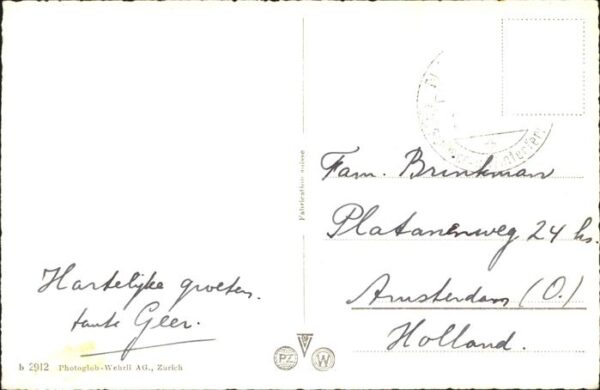 Fam. Brinkman
Platanenweg 24 hs.
Amsterdam (O.)
Holland.
Hartelijke groeten.
tante Geer.
Fabrication suisse
b 2912 Photoglob-Wehrli AG., Zürich
PZ W